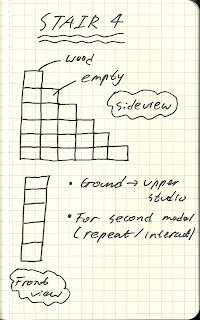 STAIR 4
wood
empty
sideview
• Ground → upper
studio
• For second model
(repeat/interact)
Front
view